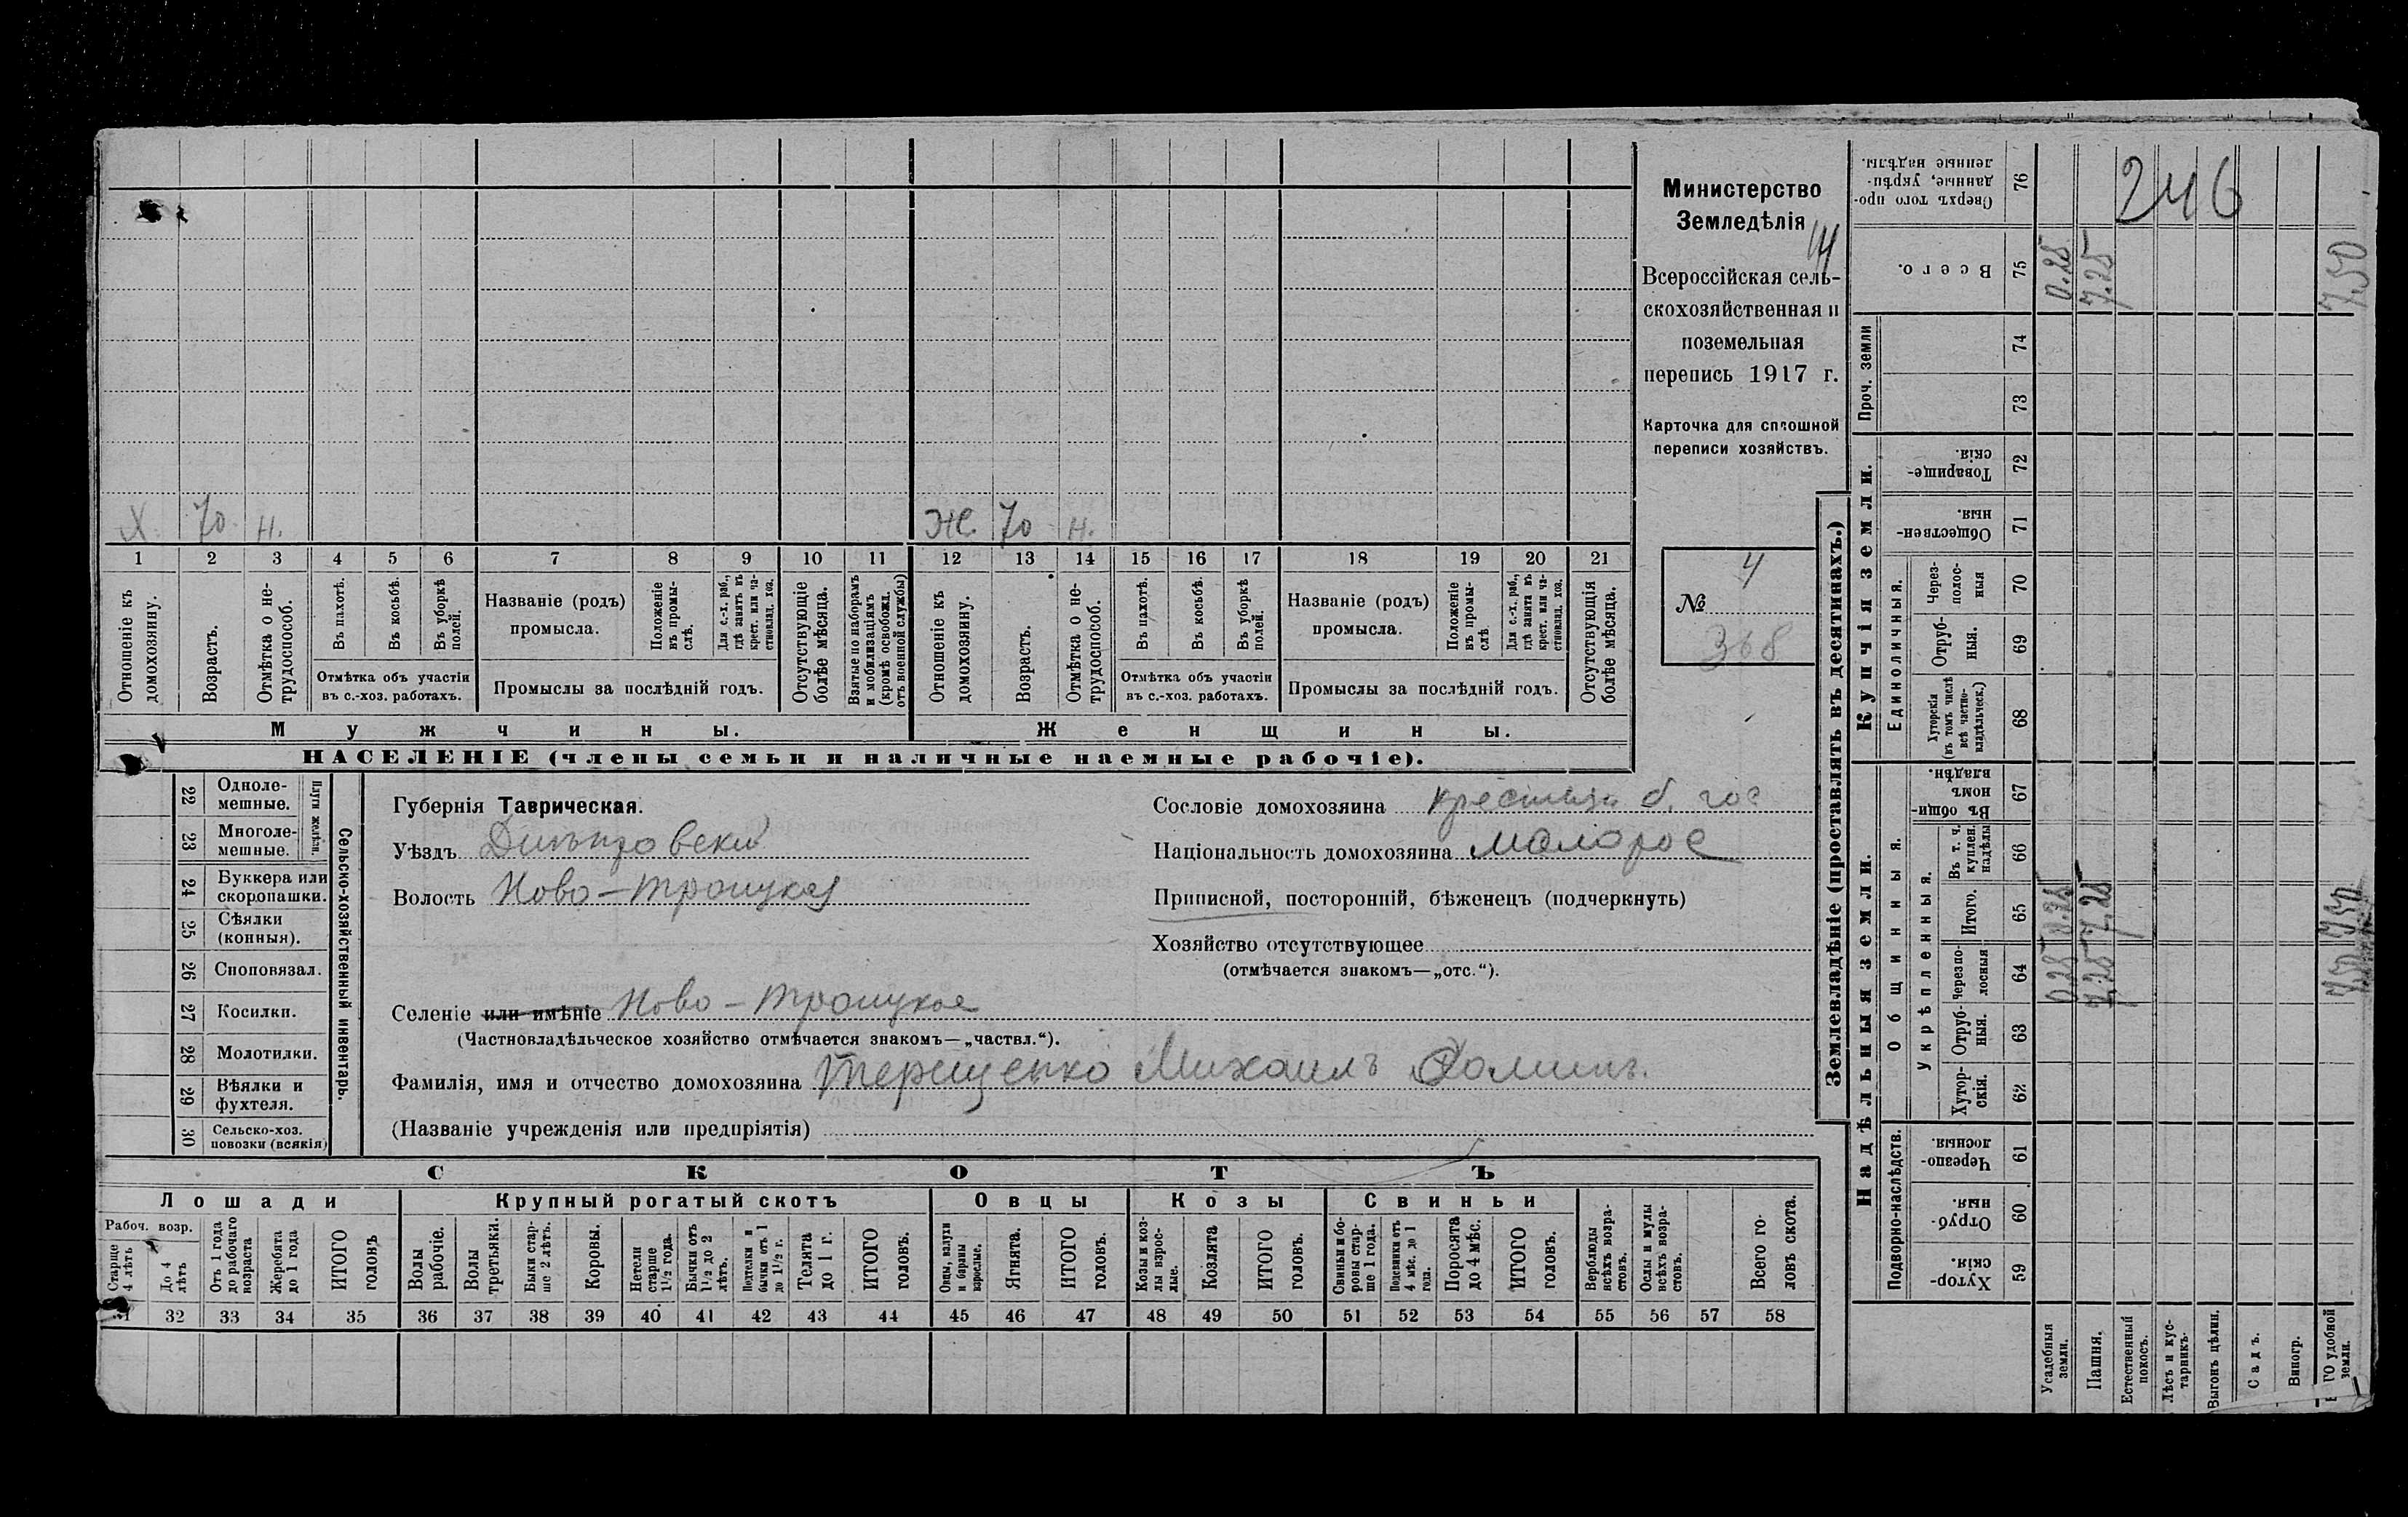 Министерство
Земледѣлія
14
Всероссійская сель-
скохозяйственная и
поземельная
перепись 1917 г.
Карточка для сплошной
переписи хозяйствъ.
№ 4
368
Х. 70 н. Ж. 70 н.
1 2 3 4 5 6 7 8 9 10 11 12 13 14 15 16 17 18 19 20 21
Отношеніе къ домохозяину.
Возрастъ.
Отмѣтка о не-трудоспособ.
Въ пахотѣ.
Въ косьбѣ.
Въ уборкѣ полей.
Отмѣтка объ участіи
въ с.-хоз. работахъ.
Названіе (родъ)
промысла.
Положеніе въ промы-слѣ.
Для с.-х. раб., гдѣ занятъ въ крест. или ча-стновлад. хоз.
Промыслы за послѣдній годъ.
Отсутствующіе болѣе мѣсяца.
Взятые по наборамъ и мобилизаціямъ (кромѣ освобожд. отъ военной службы)
Отношеніе къ домохозяину.
Возрастъ.
Отмѣтка о не-трудоспособ.
Въ пахотѣ.
Въ косьбѣ.
Въ уборкѣ полей.
Отмѣтка объ участіи
въ с.-хоз. работахъ.
Названіе (родъ)
промысла.
Положеніе въ промы-слѣ
Для с.-х. раб., гдѣ занята въ крест. или ча-стновлад. хоз.
Промыслы за послѣдній годъ.
Отсутствующія болѣе мѣсяца.
Мужчины. Женщины.
НАСЕЛЕНІЕ (члены семьи и наличные наемные рабочіе).
Сельско-хозяйственный инвентарь.
Плуги желѣзн.
22 Одноле-мешные.
23 Многоле-мешные.
24 Буккера или скоропашки.
25 Сѣялки (конныя).
26 Сноповязал.
27 Косилки.
28 Молотилки.
29 Вѣялки и фухтеля.
30 Сельско-хоз. повозки (всякія)
Губернія Таврическая.
Уѣздъ Днѣпровскій
Волость Ново-Троицкая
Сословіе домохозяина крестьян б. гос
Національность домохозяина малорос
Приписной, посторонній, бѣженецъ (подчеркнуть)
Хозяйство отсутствующее
(отмѣчается знакомъ—„отс.“).
Селеніе или имѣніе Ново-Троицкое
(Частновладѣльческое хозяйство отмѣчается знакомъ—„частвл.“).
Фамилія, имя и отчество домохозяина Терещенко Михаилъ Фомичъ.
(Названіе учрежденія или предпріятія)
СКОТЪ
Лошади Крупный рогатый скотъ Овцы Козы Свиньи
Рабоч. возр.
Старше 4 лѣтъ
До 4 лѣтъ
Отъ 1 года до рабочаго возраста
Жеребята до 1 года
ИТОГО головъ
Волы рабочіе.
Волы третьяки.
Быки стар-ше 2 лѣтъ.
Коровы.
Нетели старше 1 1/2 года.
Бычки отъ 1 1/2 до 2 лѣтъ.
Подтелки и бычки отъ 1 до 1 1/2 г.
Телята до 1 г.
ИТОГО головъ.
Овцы, валухи и бараны взрослые.
Ягнята.
ИТОГО головъ.
Козы и коз-лы взрос-лые.
Козлята
ИТОГО головъ.
Свиньи и бо-ровы стар-ше 1 года.
Подсвинки отъ 4 мѣс. до 1 года.
Поросята до 4 мѣс.
ИТОГО головъ.
Верблюды всѣхъ возра-стовъ.
Ослы и мулы всѣхъ возра-стовъ.
Всего го-ловъ скота.
31 32 33 34 35 36 37 38 39 40 41 42 43 44 45 46 47 48 49 50 51 52 53 54 55 56 57 58
Землевладѣніе (проставлять въ десятинахъ.)
246
Сверхъ того про-данные, укрѣп-ленные надѣлы. 76
Всего. 75 0.25 7.25 7,50
Проч. земли 74 73
Купчія земли.
Товарище-скія. 72
Обществен-ныя. 71
Единоличныя.
Через-полос-ныя 70
Отруб-ныя. 69
Хуторскія (въ томъ числѣ всѣ частно-владѣльческ.) 68
Надѣльныя земли.
Общинныя.
Въ общин-номъ владѣн. 67
Укрѣпленныя.
Въ т. ч. куплен. надѣлы 66
Итого. 65 0.25 7.25 7.50
Черезпо-лосныя 64 0.25 7,25 7,50
Отруб-ныя. 63
Хутор-скія. 62
Подворно-наслѣдств.
Черезпо-лосныя. 61
Отруб-ныя. 60
Хутор-скія. 59
Усадебныя земли.
Пашня.
Естественный покосъ.
Лѣсъ и кус-тарникъ.
Выгонъ цѣлин.
Садъ.
Виногр.
ГО удобной земли.